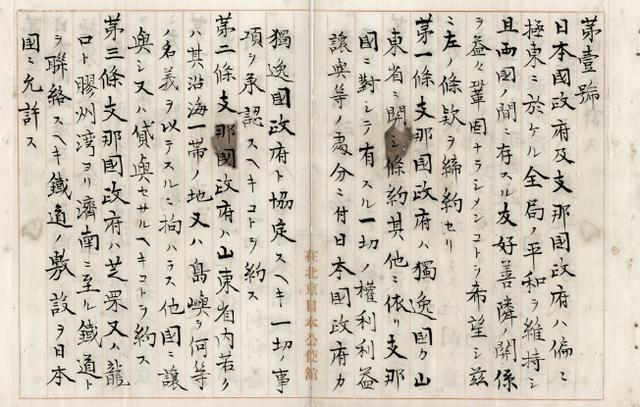 第壹號
日本國政府及支那國政府ハ偏ニ
極東ニ於ケル全局ノ平和ヲ維持シ
且両國ノ間ニ存スル友好善隣ノ關係
ヲ益々鞏固ナラシメンコトヲ希望シ茲
ニ左ノ條款ヲ締約セリ
第一條支那國政府ハ獨逸國カ山
東省ニ關シ條約其他ニ依リ支那
國ニ對シテ有スル一切ノ權利利益
讓與等ノ處分ニ付日本國政府カ
獨逸國政府ト協定スヘキ一切ノ事
項ヲ承認スヘキコトヲ約ス
第二條支那國政府ハ山東省内若ク
ハ其沿海一帯ノ地又ハ島嶼ヲ何等
ノ名義ヲ以テスルニ拘ハラス他國ニ讓
與シ又ハ貸與セサルヘキコトヲ約ス
第三條支那國政府ハ芝罘又ハ龍
口ト膠州湾ヨリ濟南ニ至ル鐵道ト
ヲ聯絡スヘキ鐵道ノ敷設ヲ日本
國ニ允許ス
在北京日本公使館